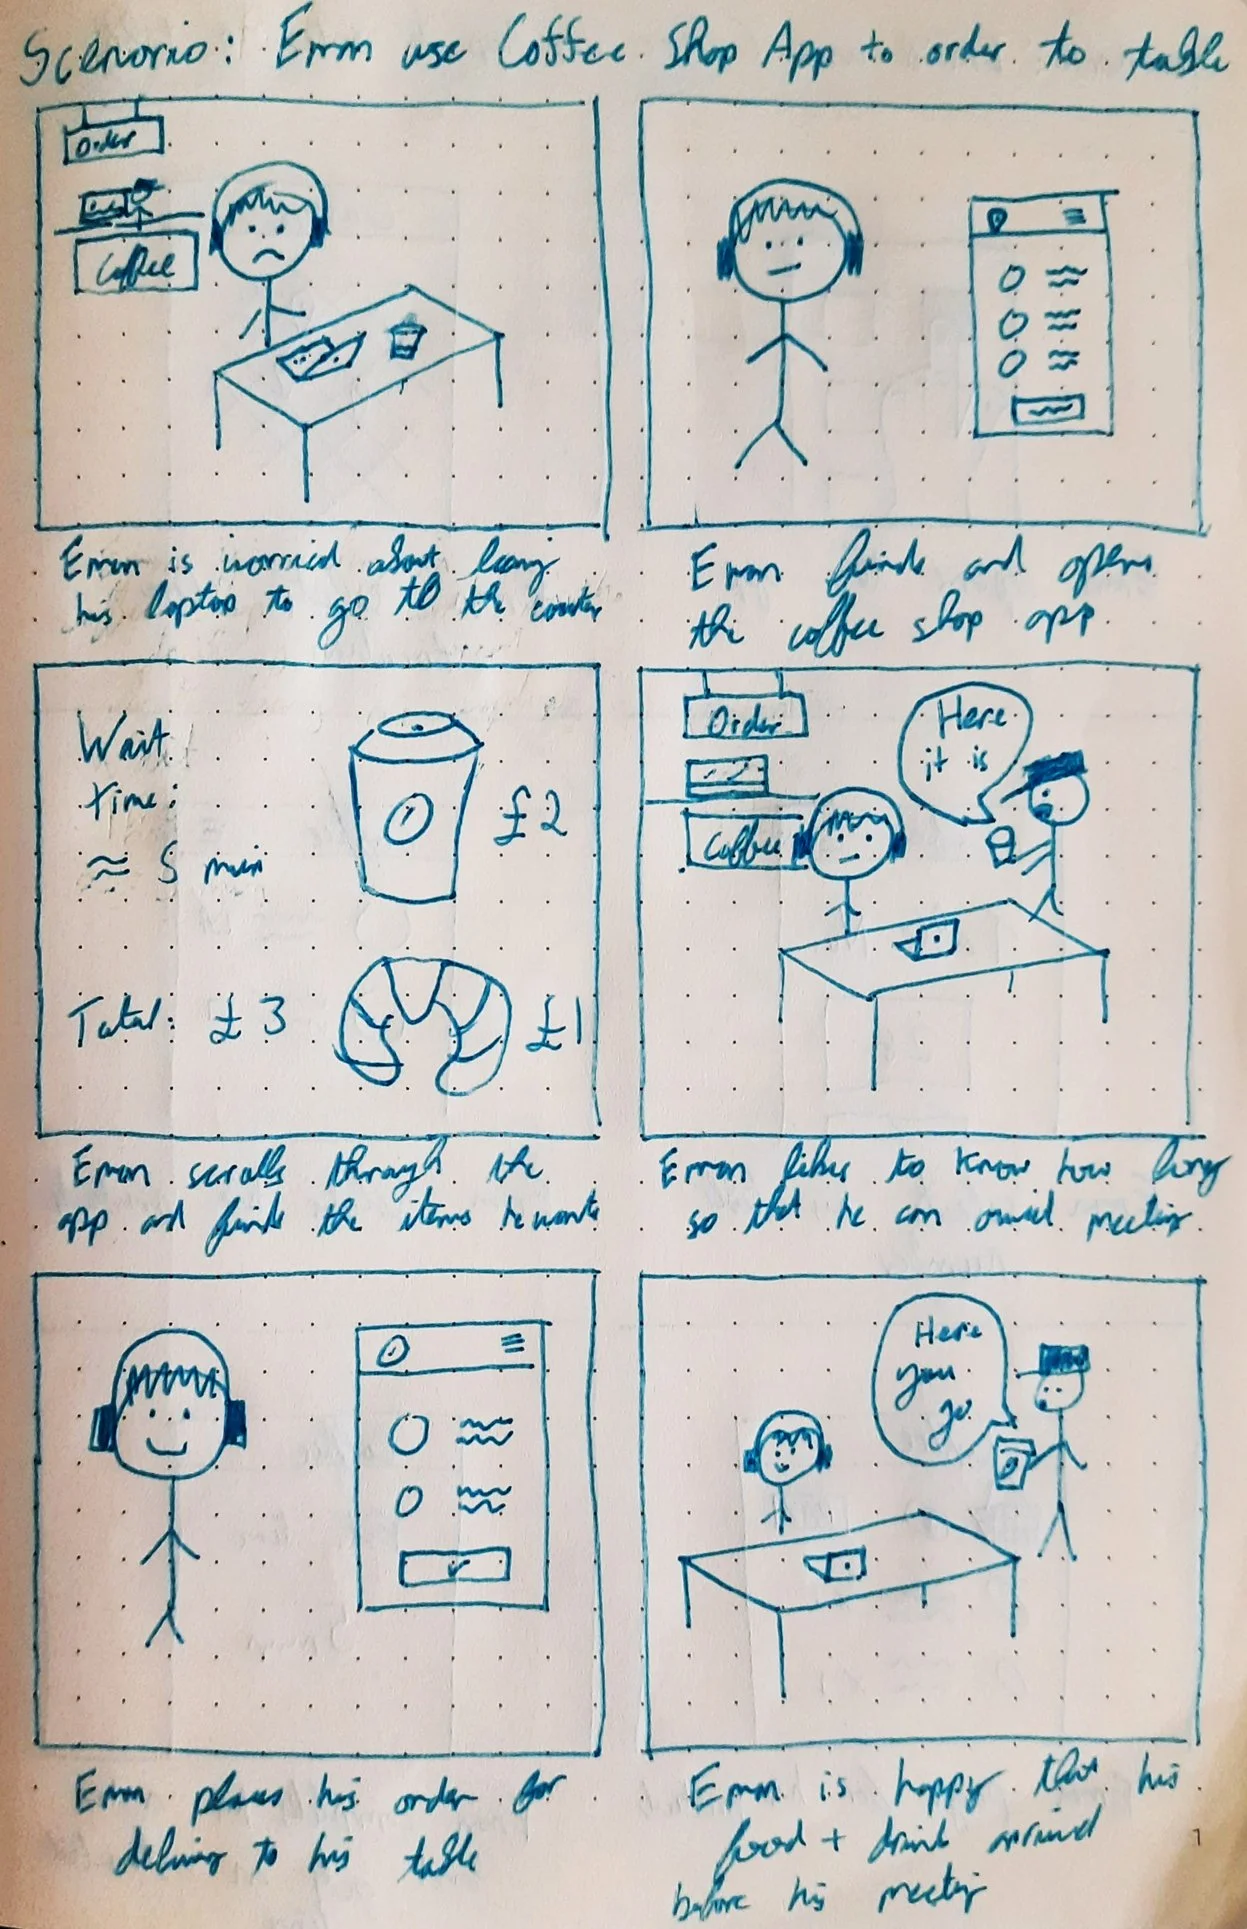 Scenario: Emon use Coffee Shop App to order to table
Order
Coffee
Emon is worried about leaving
his laptop to go to the counter
Emon finds and opens
the coffee shop app
Wait
time:
≈ 5 min
£2
Total: £3
£1
Emon scrolls through the
app and finds the items he wants
Order
Here
it is
Coffee
Emon likes to know how long
so that he can avoid meeting
Emon places his order for
delivery to his table
Here
you
go
Emon is happy that his
food + drink arrived
before his meeting